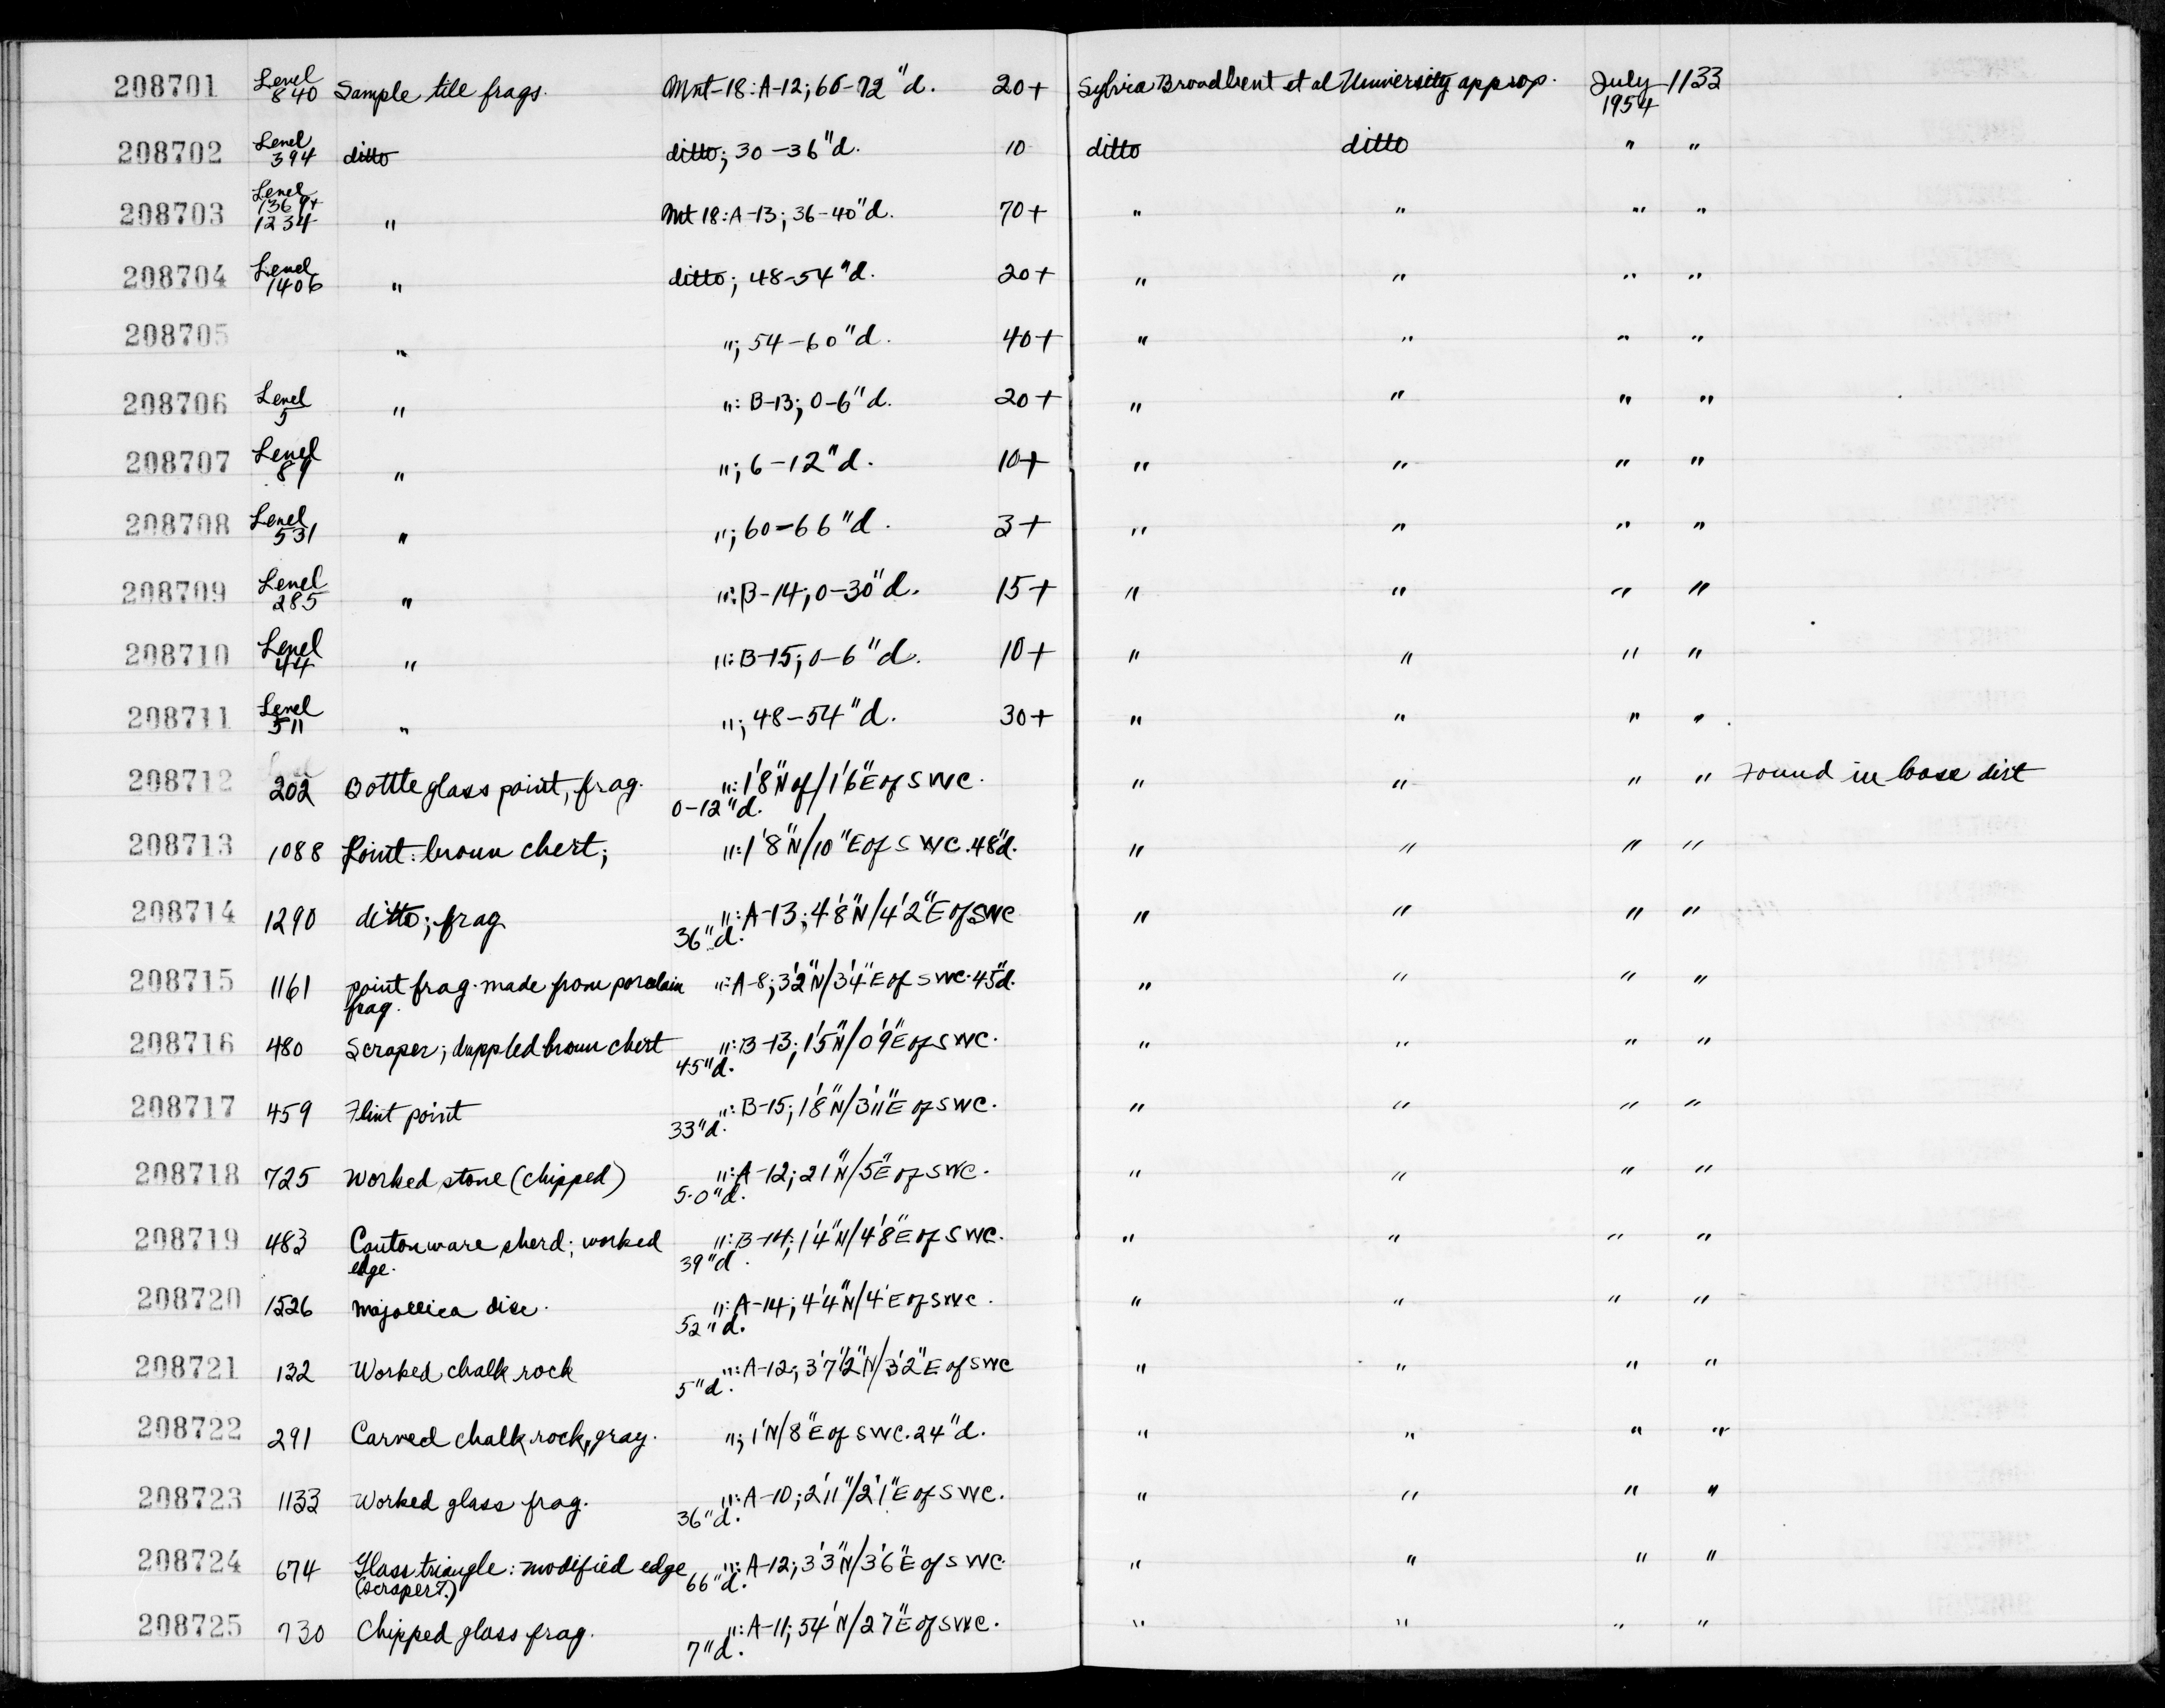 208701 Level 840 Sample tile frags. Mnt-18:A-12; 66-72"d. 20+ Sylvia Broadbent et al University approp. July 1954 1133
208702 Level 394 ditto ditto; 30-36"d. 10 ditto ditto " "
208703 Level 1369+ 1234 " Mnt 18:A-13; 36-40"d. 70+ " " " "
208704 Level 1406 " ditto; 48-54"d. 20+ " " " "
208705 " "; 54-60"d. 40+ " " " "
208706 Level 5 " ": B-13; 0-6"d. 20+ " " " "
208707 Level 89 " "; 6-12"d. 10+ " " " "
208708 Level 531 " "; 60-66"d. 3+ " " " "
208709 Level 285 " ": B-14; 0-30"d. 15+ " " " "
208710 Level 44 " ": B-15; 0-6"d. 10+ " " " "
208711 Level 511 " "; 48-54"d. 30+ " " " "
208712 202 Bottle glass point, frag. ": 1'8"N of/1'6"E of SWC. 0-12"d. " " " " Found in loose dirt
208713 1088 Point: brown chert; ": 1'8"N/10"E of SWC. 48"d. " " " "
208714 1290 ditto; frag ": A-13; 4'8"N/4'2"E of SWC 36"d. " " " "
208715 1161 point frag. made from porcelain frag. ": A-8; 3'2"N/3'4"E of SWC. 45"d. " " " "
208716 480 Scraper; dappled brown chert ": B-13; 1'5"N/0'9"E of SWC. 45"d. " " " "
208717 459 Flint point ": B-15; 1'8"N/3'11"E of SWC. 33"d. " " " "
208718 725 Worked stone (chipped) ": A-12; 21"N/5"E of SWC. 5-0"d. " " " "
208719 483 Cantonware sherd; worked edge. ": B-14; 1'4"N/4'8"E of SWC. 39"d. " " " "
208720 1526 Majollica disc. ": A-14; 4'4"N/4'E of SWC. 52"d. " " " "
208721 132 Worked chalk rock ": A-12; 3'7½"N/3'2"E of SWC 5"d. " " " "
208722 291 Carved chalk rock, gray. "; 1'N/8"E of SWC. 24"d. " " " "
208723 1133 Worked glass frag. ": A-10; 2'11"/2'1"E of SWC. 36"d. " " " "
208724 674 Glass triangle: modified edge (scraper?) ": A-12; 3'3"N/3'6"E of SWC. 66"d. " " " "
208725 730 Chipped glass frag. ": A-11; 54'N/27"E of SWC. 7"d. " " " "